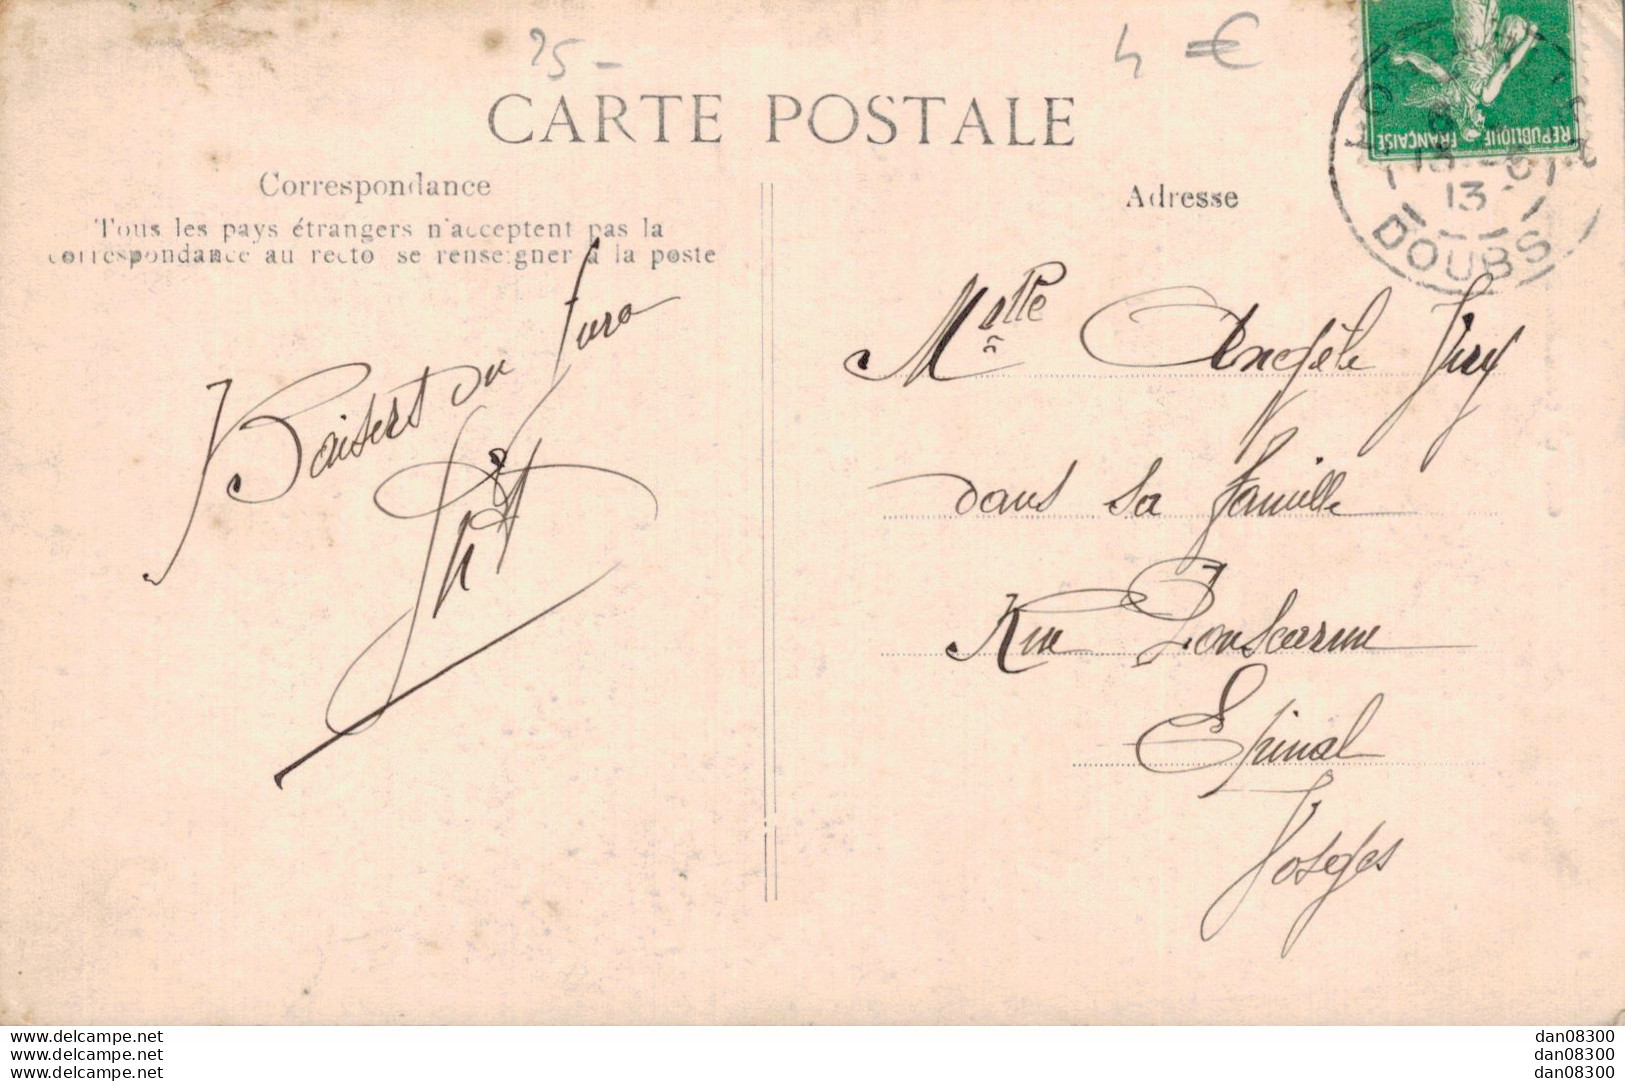 25- 4 €
CARTE POSTALE
REPUBLIQUE FRANÇAISE
13
DOUBS
Correspondance
Tous les pays étrangers n'acceptent pas la
correspondance au recto se renseigner à la poste
Baisers du Jura
Adresse
Melle Angèle Viry
dans sa famille
Rue Ponscarme
Epinal
Vosges
www.delcampe.net
www.delcampe.net
www.delcampe.net
dan08300
dan08300
dan08300